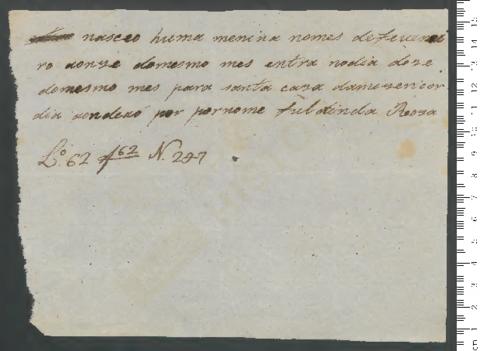 nasceo huma menina nomes de feverei
ro aonze domesmo mes entra nodia doze
domesmo mes para santa caza damezericor
dia aondeao por pornome Rosa
L.º 62 f 62 N. 247